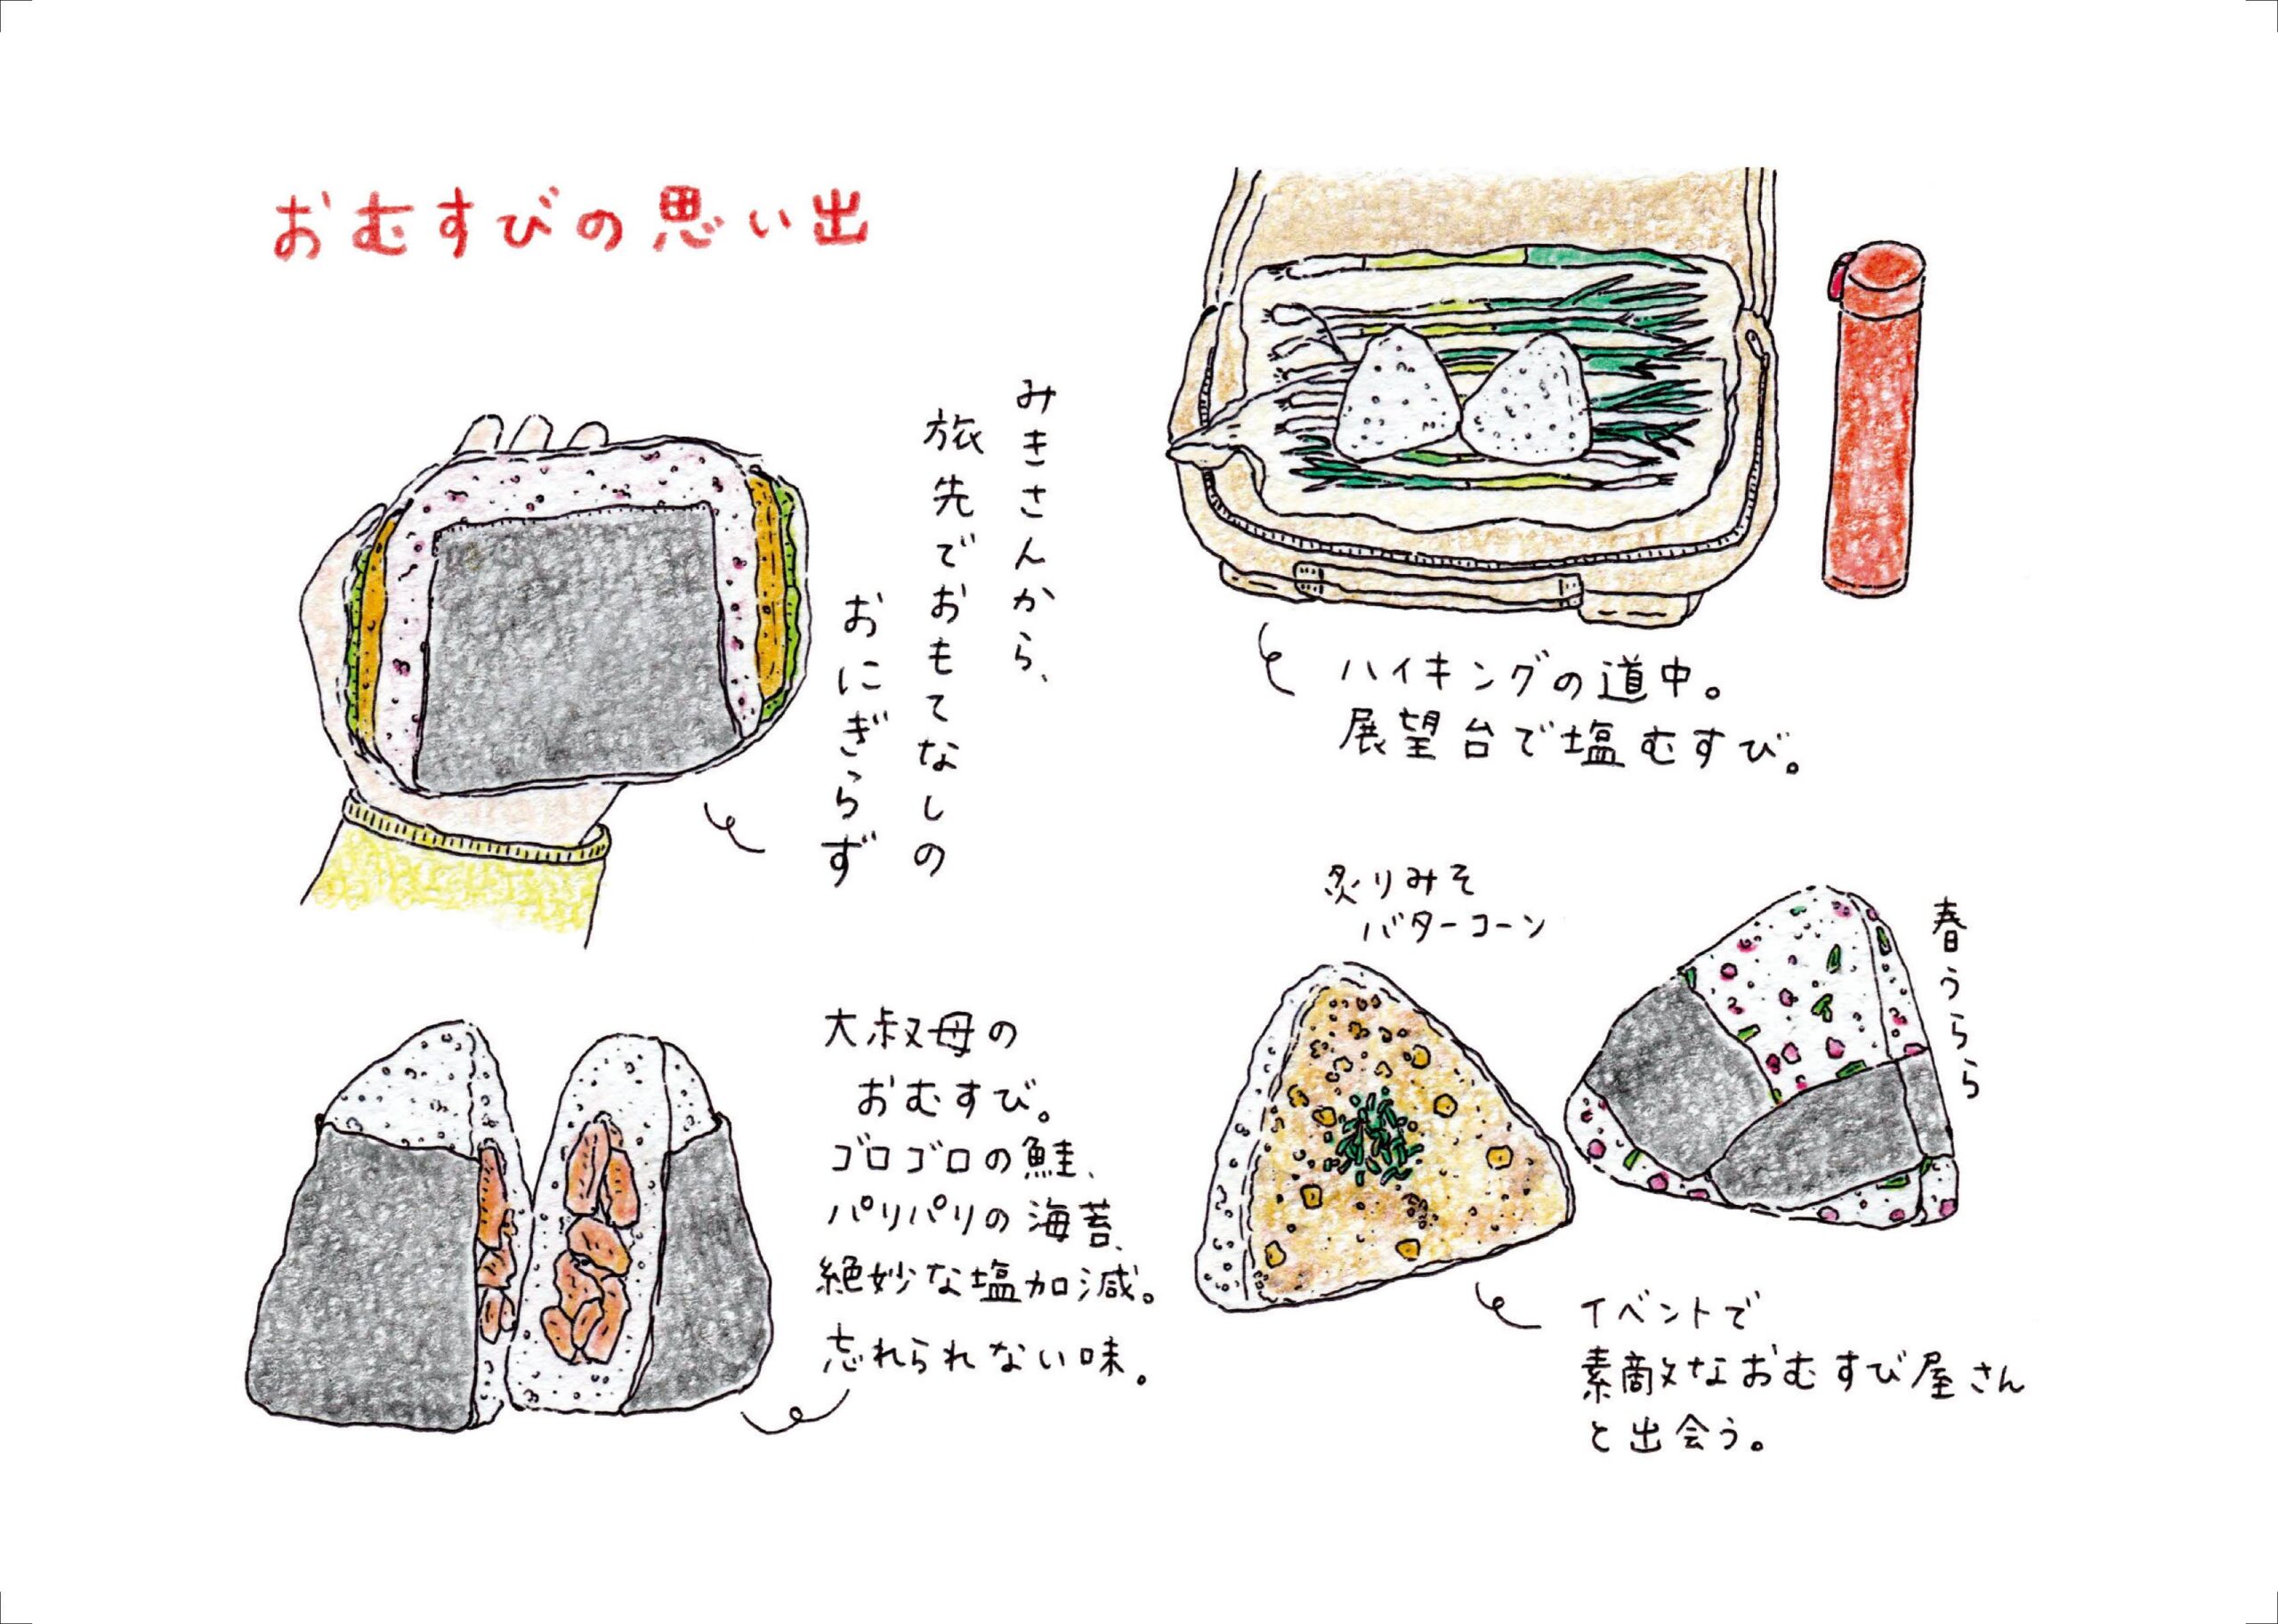 おむすびの思い出
みきさんから、
旅先でおもてなしの
おにぎらず
大叔母の
おむすび。
ゴロゴロの鮭、
パリパリの海苔、
絶妙な塩加減。
忘れられない味。
ハイキングの道中。
展望台で塩むすび。
炙りみそ
バターコーン
春うらら
イベントで
素敵なおむすび屋さん
と出会う。